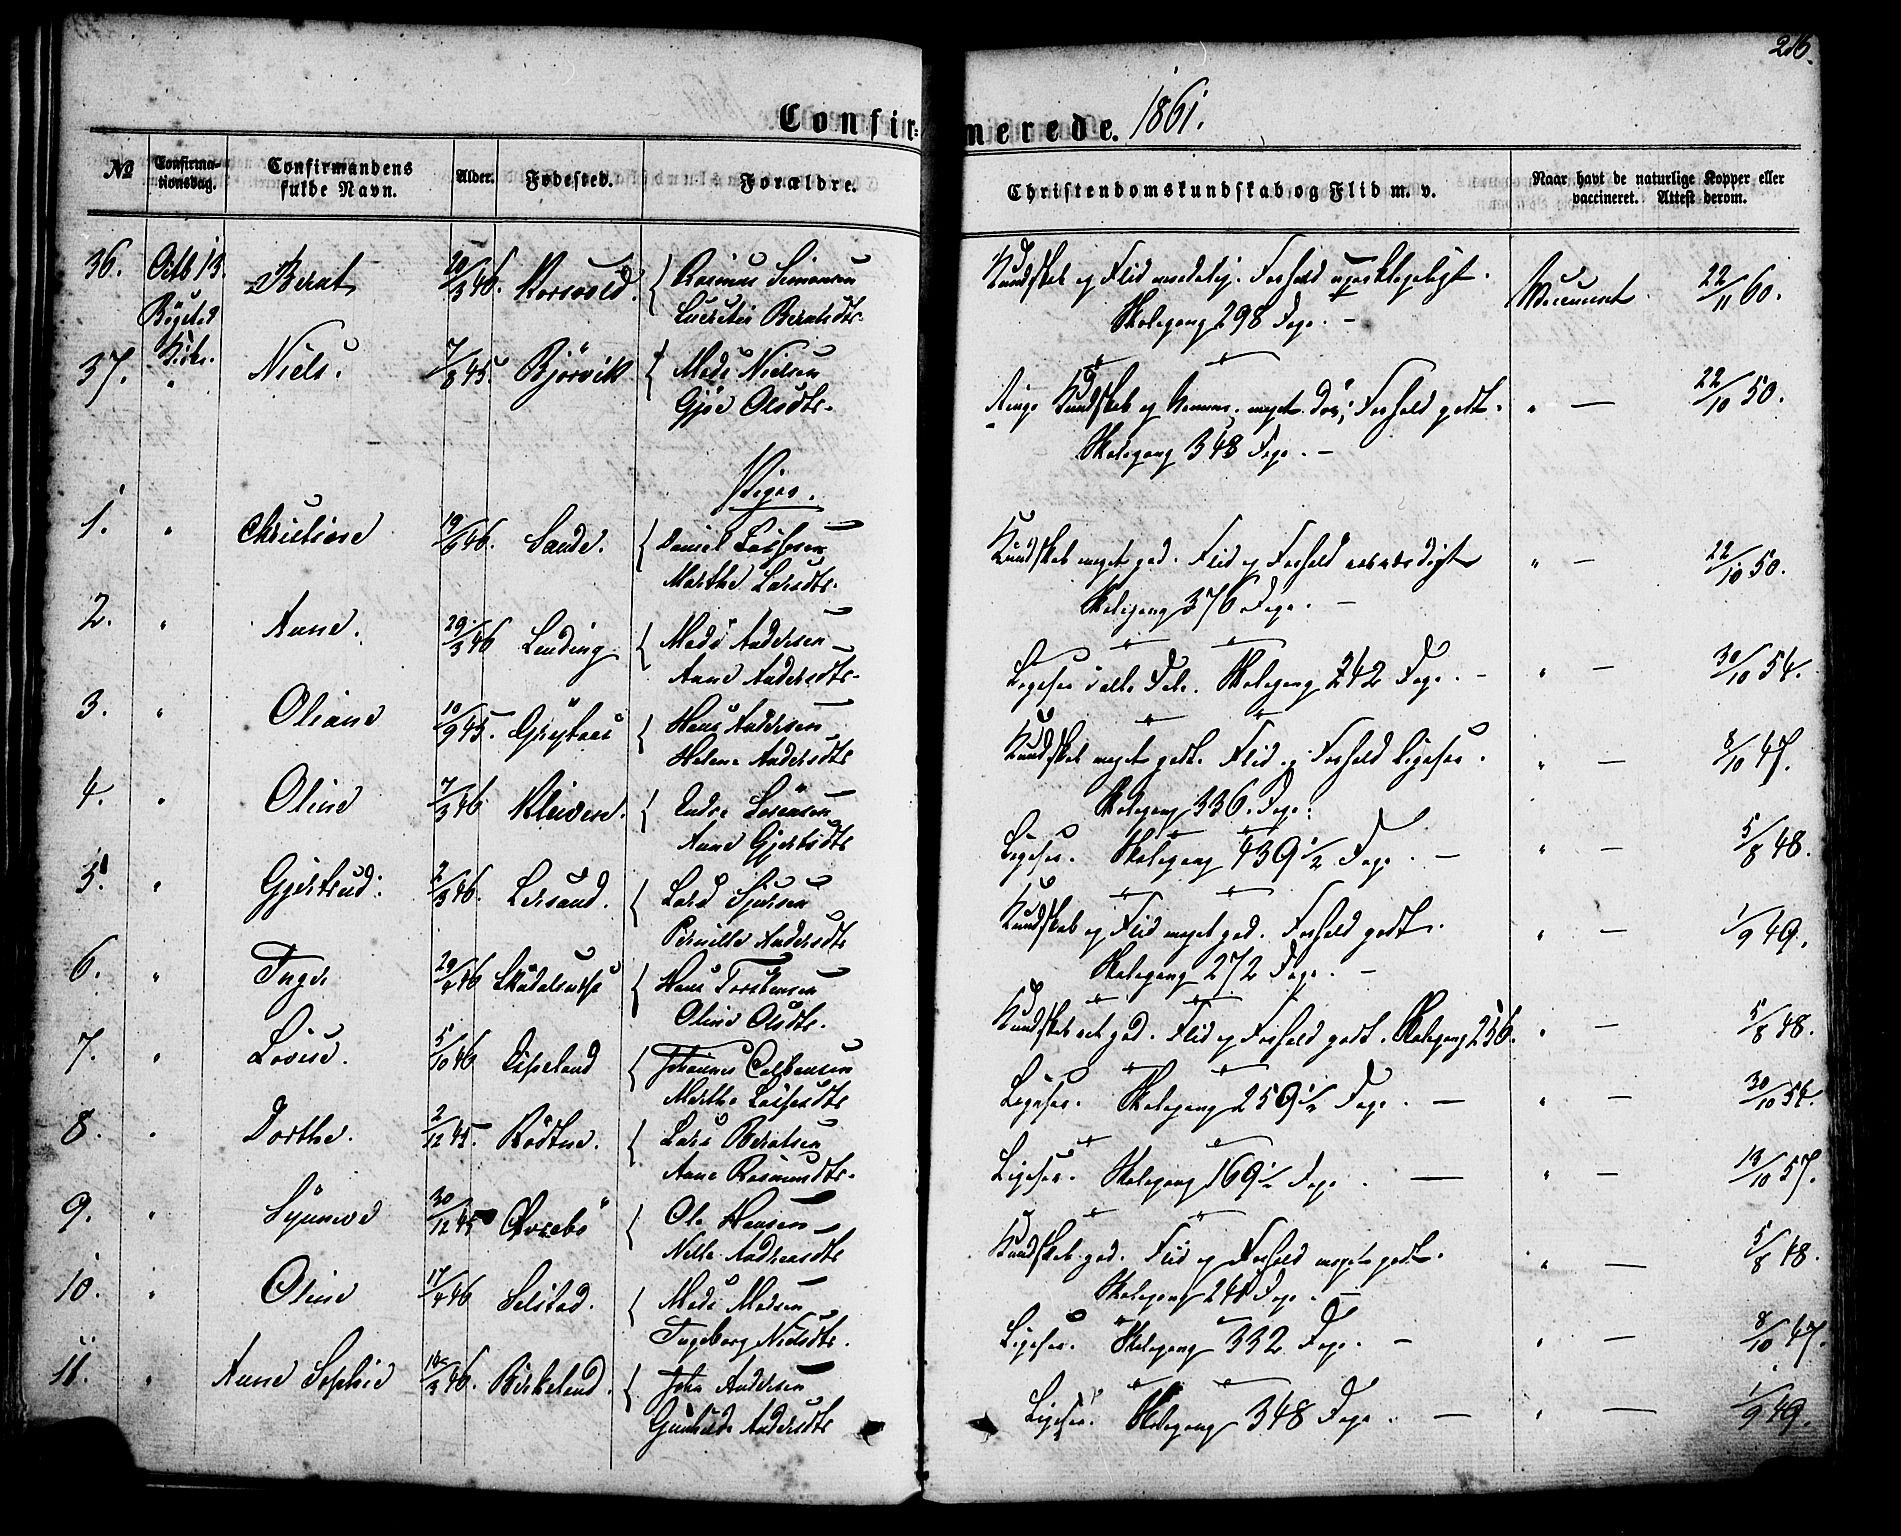 216.
Confirmerede. 1861.
No Confirmationsdag. Confirmandens fulde Navn. Alder. Fødested. Forældre. Christendomskundskab og Flid m. v. Naar havt de naturlige Kopper eller vaccineret. Attest derom.
36. Octb 13. Bernt 20/3 46. { Rasmus Simonsen Kundskab og Flid maadelig. Forhold upaaklageligt. Vaccineret 22/11 60.
Berntsdtr. Skolegang 298 Dage. –
37. " Niels. 7/8 45. Bjørvik { Mads Nielsen Kundskab og meget Forhold godt. " — 22/10 50.
Olsdtr. Skolegang 348 Dage. –
Piger.
1. " Christiane 19/6 46. Sande. { Daniel Kundskab meget god. Flid og Forhold " — 22/10 50.
Marthe Larsdtr. Skolegang 376 Dage. –
2. " Anne. 29/3 46 Lending { Mads Andersen Ligesaa i alle Dele. Skolegang 242 Dage. – " — 30/10 54.
Anne Andersdtr.
3. " Oliane 10/9 45. { Hans Andersen Kundskab meget godt. Flid og Forhold ligesaa. " — 8/10 47.
Helene Andersdtr Skolegang 336 Dage.
4. " Oline 7/3 46 { Endre Ligesaa. Skolegang 439 1/2 Dage. – " — 5/8 48.
Anne
5. " Gjertrud. 2/3 46. { Lars Sjursen Kundskab og Flid meget god. Forhold godt. " — 1/9 49.
Pernille Andersdtr Skolegang 272 Dage. –
6. " Inger 29/4 46 { Hans Torstensen Kundskab ret god. Flid og Forhold godt. Skolegang 256. " — 5/8 48.
Oline Olsdtr.
7. " Lovise. 5/10 46 Espeland { Johannes Ligesaa. Skolegang 259 1/2 Dage. – " — 30/10 54.
Marthe
8. " Dorthe. 2/12 45. { Lars Berntsen Ligesaa. Skolegang 169 1/2 Dage. — " — 13/10 57.
Anne Rasmusdtr.
9. " Synneve 30/12 45 { Ole Hansen Kundskab god. Flid og Forhold meget godt. " — 5/8 48.
Andreasdtr Skolegang 248 Dage. –
10. " Oline 17/4 46 Solstad. { Mads Madsen Ligesaa. Skolegang 332 Dage. – " — 8/10 47.
Ingeborg Nielsdtr.
11. " Anne Sophie 16/3 46. Birkeland. { John Andersen Ligesaa. Skolegang 348 Dage. – " — 1/9 49.
Andersdtr